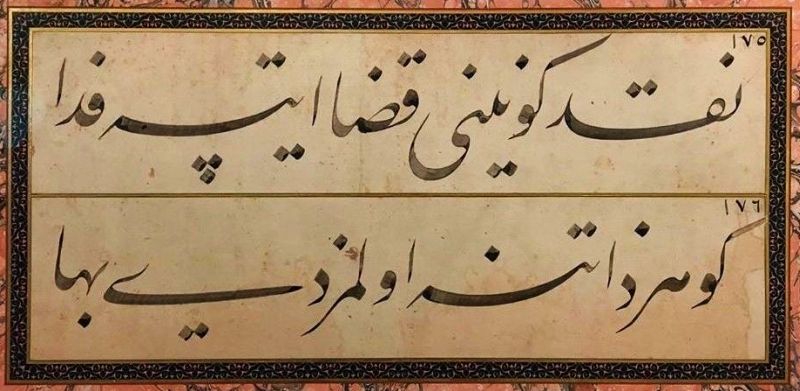 ١٧٥
نقد كونینی قضا ایتسه فدا
١٧٦
كوهر ذاتنه اولمزدی بها